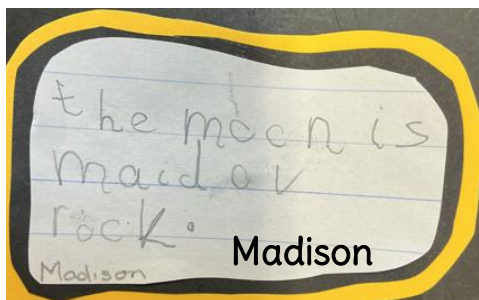 the moon is
maid ov
rock.
Madison
Madison